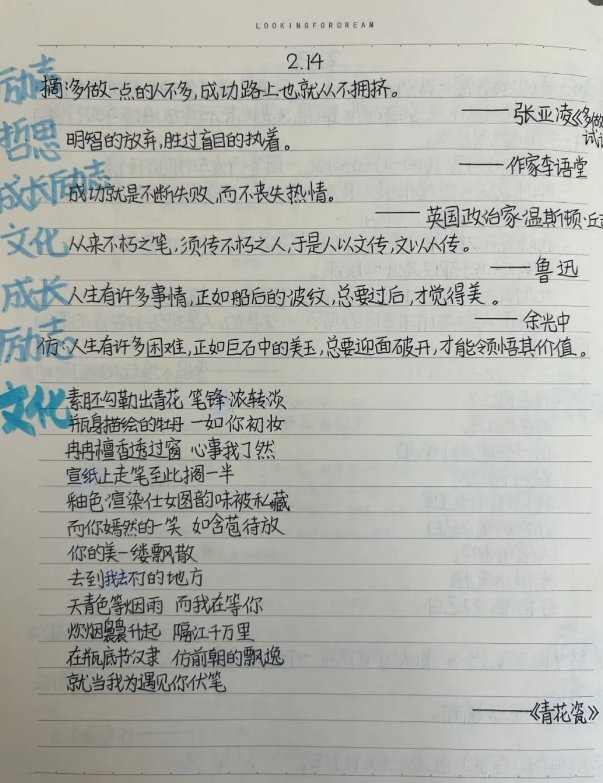 LOOKINGFORDREAM
2.14
励志
摘:多做一点的人不多,成功路上也就从不拥挤。
——张亚凌《多做
试试
哲思
明智的放弃,胜过盲目的执着。
——作家李语堂
成长励志
成功就是不断失败,而不丧失热情。
——英国政治家·温斯顿·丘
文化
从来不朽之笔,须传不朽之人,于是人以文传,文以人传。
——鲁迅
成长
人生有许多事情,正如船后的波纹,总要过后,才觉得美。
——余光中
励志
仿:人生有许多困难,正如巨石中的美玉,总要迎面破开,才能领悟其价值。
文化
素胚勾勒出青花 笔锋浓转淡
瓶身描绘的牡丹 一如你初妆
冉冉檀香透过窗 心事我了然
宣纸上走笔至此搁一半
釉色渲染仕女图韵味被私藏
而你嫣然的一笑 如含苞待放
你的美一缕飘散
去到我去不了的地方
天青色等烟雨 而我在等你
炊烟袅袅升起 隔江千万里
在瓶底书汉隶 仿前朝的飘逸
就当我为遇见你伏笔
——《青花瓷》